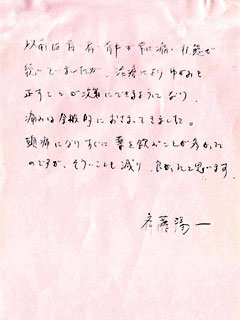 以前は首 肩 背中が常に痛い状態が
続いていましたが、治療によりゆがみを
正すことが次第にできるようになり、
痛みは全般的におさまってきました。
頭痛になりすぐに薬を飲むことが多かった
のですが、そういうことも減り、良かったと思います。
斉藤陽一